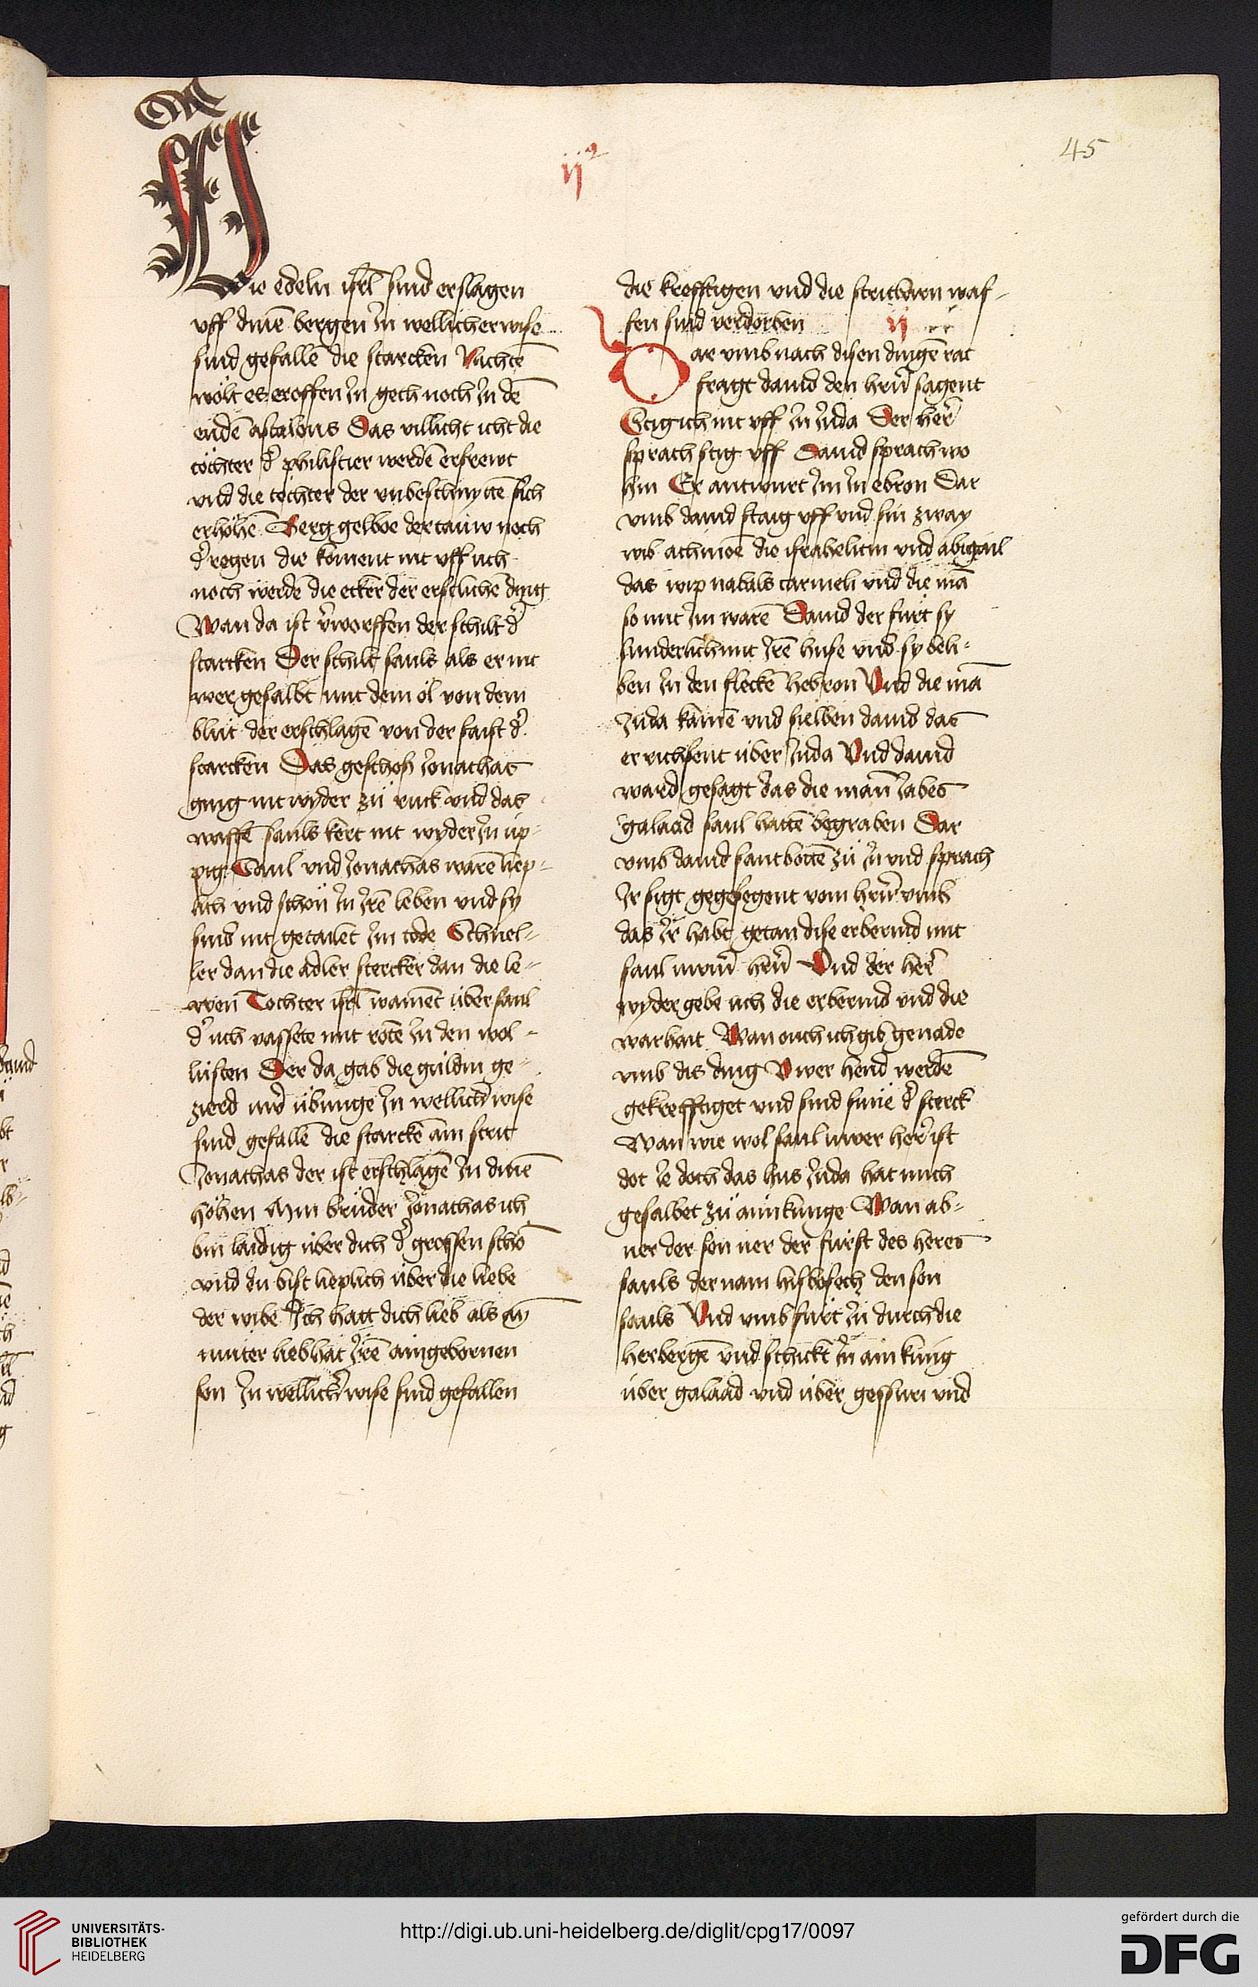 ij
45
Die edeln isrl̄ sind erslagen
vff dinē bergen Jn wellicherwise
sind gefallē die starcken Nichtē
wölt es eroffen Jn gech noch Jn dē
endē ascalons Das villicht icht die
töchter d' philistier werdē erfrewt
vnd die töchter der vnbeschnytē sich
erhöhē Berg gelboe der tauw noch
d' regen die koment nit vff üch
noch werde die ecker der erstlichē ding
Wan da ist v'worffen der schilt d'
starcken Der schilt sauls als er nit
wer gesalbt mit dem öl von dem
blüt der erschlagē von der faist d'
starcken Das geschoß Jonathas
ging nit wyder zü ruck vnd das
waffē sauls kert nit wyder Jn üp-
pig Saul vnd Jonathas warē liep-
lich vnd schön Jn Jrē leben vnd sy
sind nit getailet Jm tode Schnel-
ler dan die adler stercker dan die le-
wen Tochter isrl̄ wainēt über saul
d' üch vassete mit röte Jn den wol-
lüsten Der da gab die guldin ge-
zierd uwer übunge Jn wellich' wise
sind gefallē die starckē am strit
Jonathas der ist erschlagē Jn dinē
höhen Min brüder Jonathas ich
bin laidig über dich d' grossen schö
vnd du bist lieplich über die liebe
der wibe Ich hatt dich lieb als ain
muter lieb hat Jrē aingebornen
son Jn wellich' wise sind gefallen
die krefftigen vnd die stritbarn waf-
fen sind verdorben ij
Dar vmb nach disen dingē rat
fragt dauid den herrn sagent
Stig ich nit vff Jn Juda Der her'
sprach stig vff Dauid sprach wo
hin Er antwurt Jm Jn ebron Dar
vmb dauid staig vff vnd sin zway
wib achinoē die israhelitin vnd abigail
das wip nabals carmeli vnd die mā
so mit Jm warē Dauid der furt sy
sunderlich mit Jrē huse vnd sy beli-
ben Jn den fleckē hebron Vnd die mā
Juda kamē vnd sielben dauid das
er richsent über Juda Vnd dauid
ward gesagt das die man Jabes
galaad saul hattē begraben Dar
vmb dauid sant bottē zü Jn vnd sprach
Jr sigt gegesegent vom hern vmb
das Jr habt getan dise erbermd mit
saul uwrm hern Vnd der her'
wyder gebe üch die erbermd vnd die
warhait Wan ouch ich gib genade
vmb dis ding Vwer hend werdē
gekrefftiget vnd sind süne d' sterck
Wan wie wol saul uwer her' ist
dot Je doch das hus Juda hat mich
gesalbet zü aim künge Wan ab-
ner der son ner der fürst des heres
sauls der nam hisboseth den son
sauls Vnd vmb furt Jn durch die
herbergē vnd schickt Jn ain küng
über galaad vnd über gessuri vnd
UNIVERSITÄTS-
BIBLIOTHEK
HEIDELBERG
http://digi.ub.uni-heidelberg.de/diglit/cpg17/0097
gefördert durch die
DFG